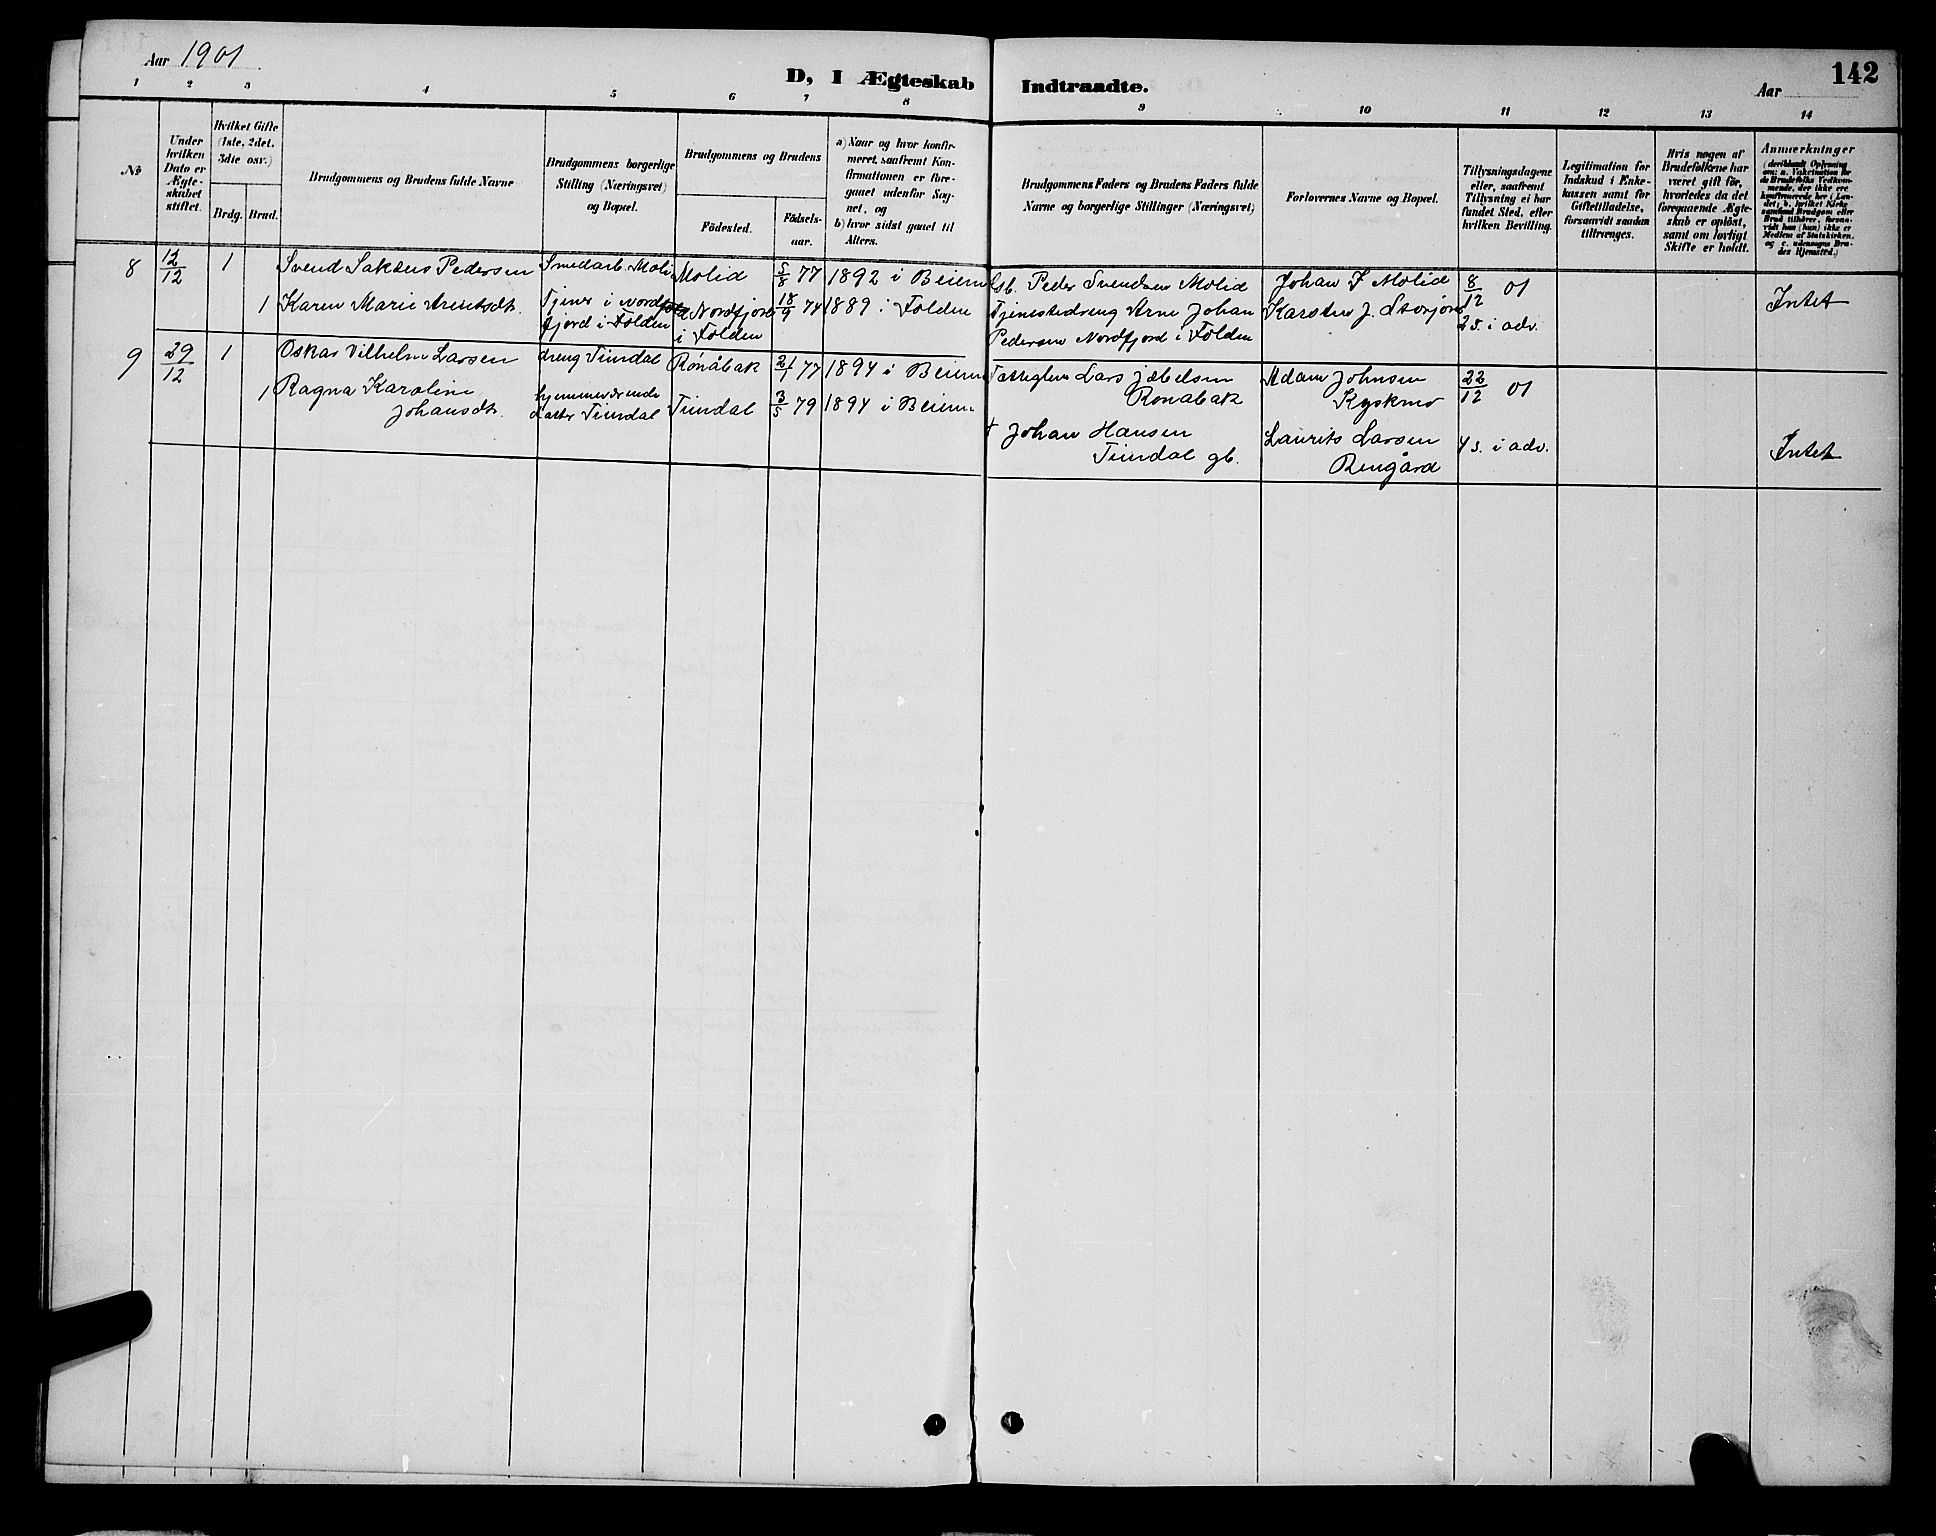 Aar 1901
D, I Ægteskab Indtraadte.
Aar
142
1 2 3 4 5 6 7 8 9 10 11 12 13 14
№
Under hvilken Dato er Ægteskabet stiftet.
Hvilket Gifte (1ste, 2det, 3die osv.)
Brdg. Brud.
Brudgommens og Brudens fulde Navne
Brudgommens borgerlige Stilling (Næringsvei) og Bopæl.
Brudgommens og Brudens
Födested.
Födselsaar.
a) Naar og hvor konfirmeret, saafremt Konfirmationen er foregaaet udenfor Sognet, og
b) hvor sidst gaaet til Alters.
Brudgommens Faders og Brudens Faders fulde Navne og borgerlige Stillinger (Næringsvei)
Forlovernes Navne og Bopæl.
Tillysningsdagene eller, saafremt Tillysning ei har fundet Sted, efter hvilken Bevilling.
Legitimation for Indskud i Enkekassen samt for Giftetilladelse, forsaavidt saadan tiltrænges.
Hvis nogen af Brudefolkene har været gift för, hvorledes da det foregaaende Ægteskab er oplöst, samt om lovligt Skifte er holdt.
Anmærkninger
(deriblandt Oplysning om: a. Vakcination for de Brudefolks Vedkommende, der ikke ere konfirmerede her i Landet; b. hvilket Kirkesamfund Brudgom eller Brud tilhörer, forsaavidt han (hun) ikke er Medlem af Statskirken, og c. udensogns Brudes Hjemsted.)
8 12/12 1 Svend Saktus Pedersen Smedarb. Moli Molid 5/8 77 1892 i Beiern Gb. Peder Svendsen Molid Johan J Molid 8/12 01
1 Karen Marie Arentsdt. Tjener i Nordfjord i Folden Nordfjord i Folden 18/9 74 1889 i Folden Tjenestedreng Arne Johan Pedersen Nordfjord i Folden Karsten J. Storjord 2 s. i adv. Intet
9 29/12 1 Oskar Vilhelm Larsen dreng Tiindal Rønåbak 21/1 77 1894 i Beiern Lars Jæbelsen Rønåbak Adam Johnsen Kyskmo 22/12 01
1 Ragna Karoline Johansdt. hjemmeværende datter Tiindal Tiindal 3/5 79 1894 i Beiern † Johan Hansen Tiindal gb. Laurits Larsen Rengård 4 s. i adv. Intet